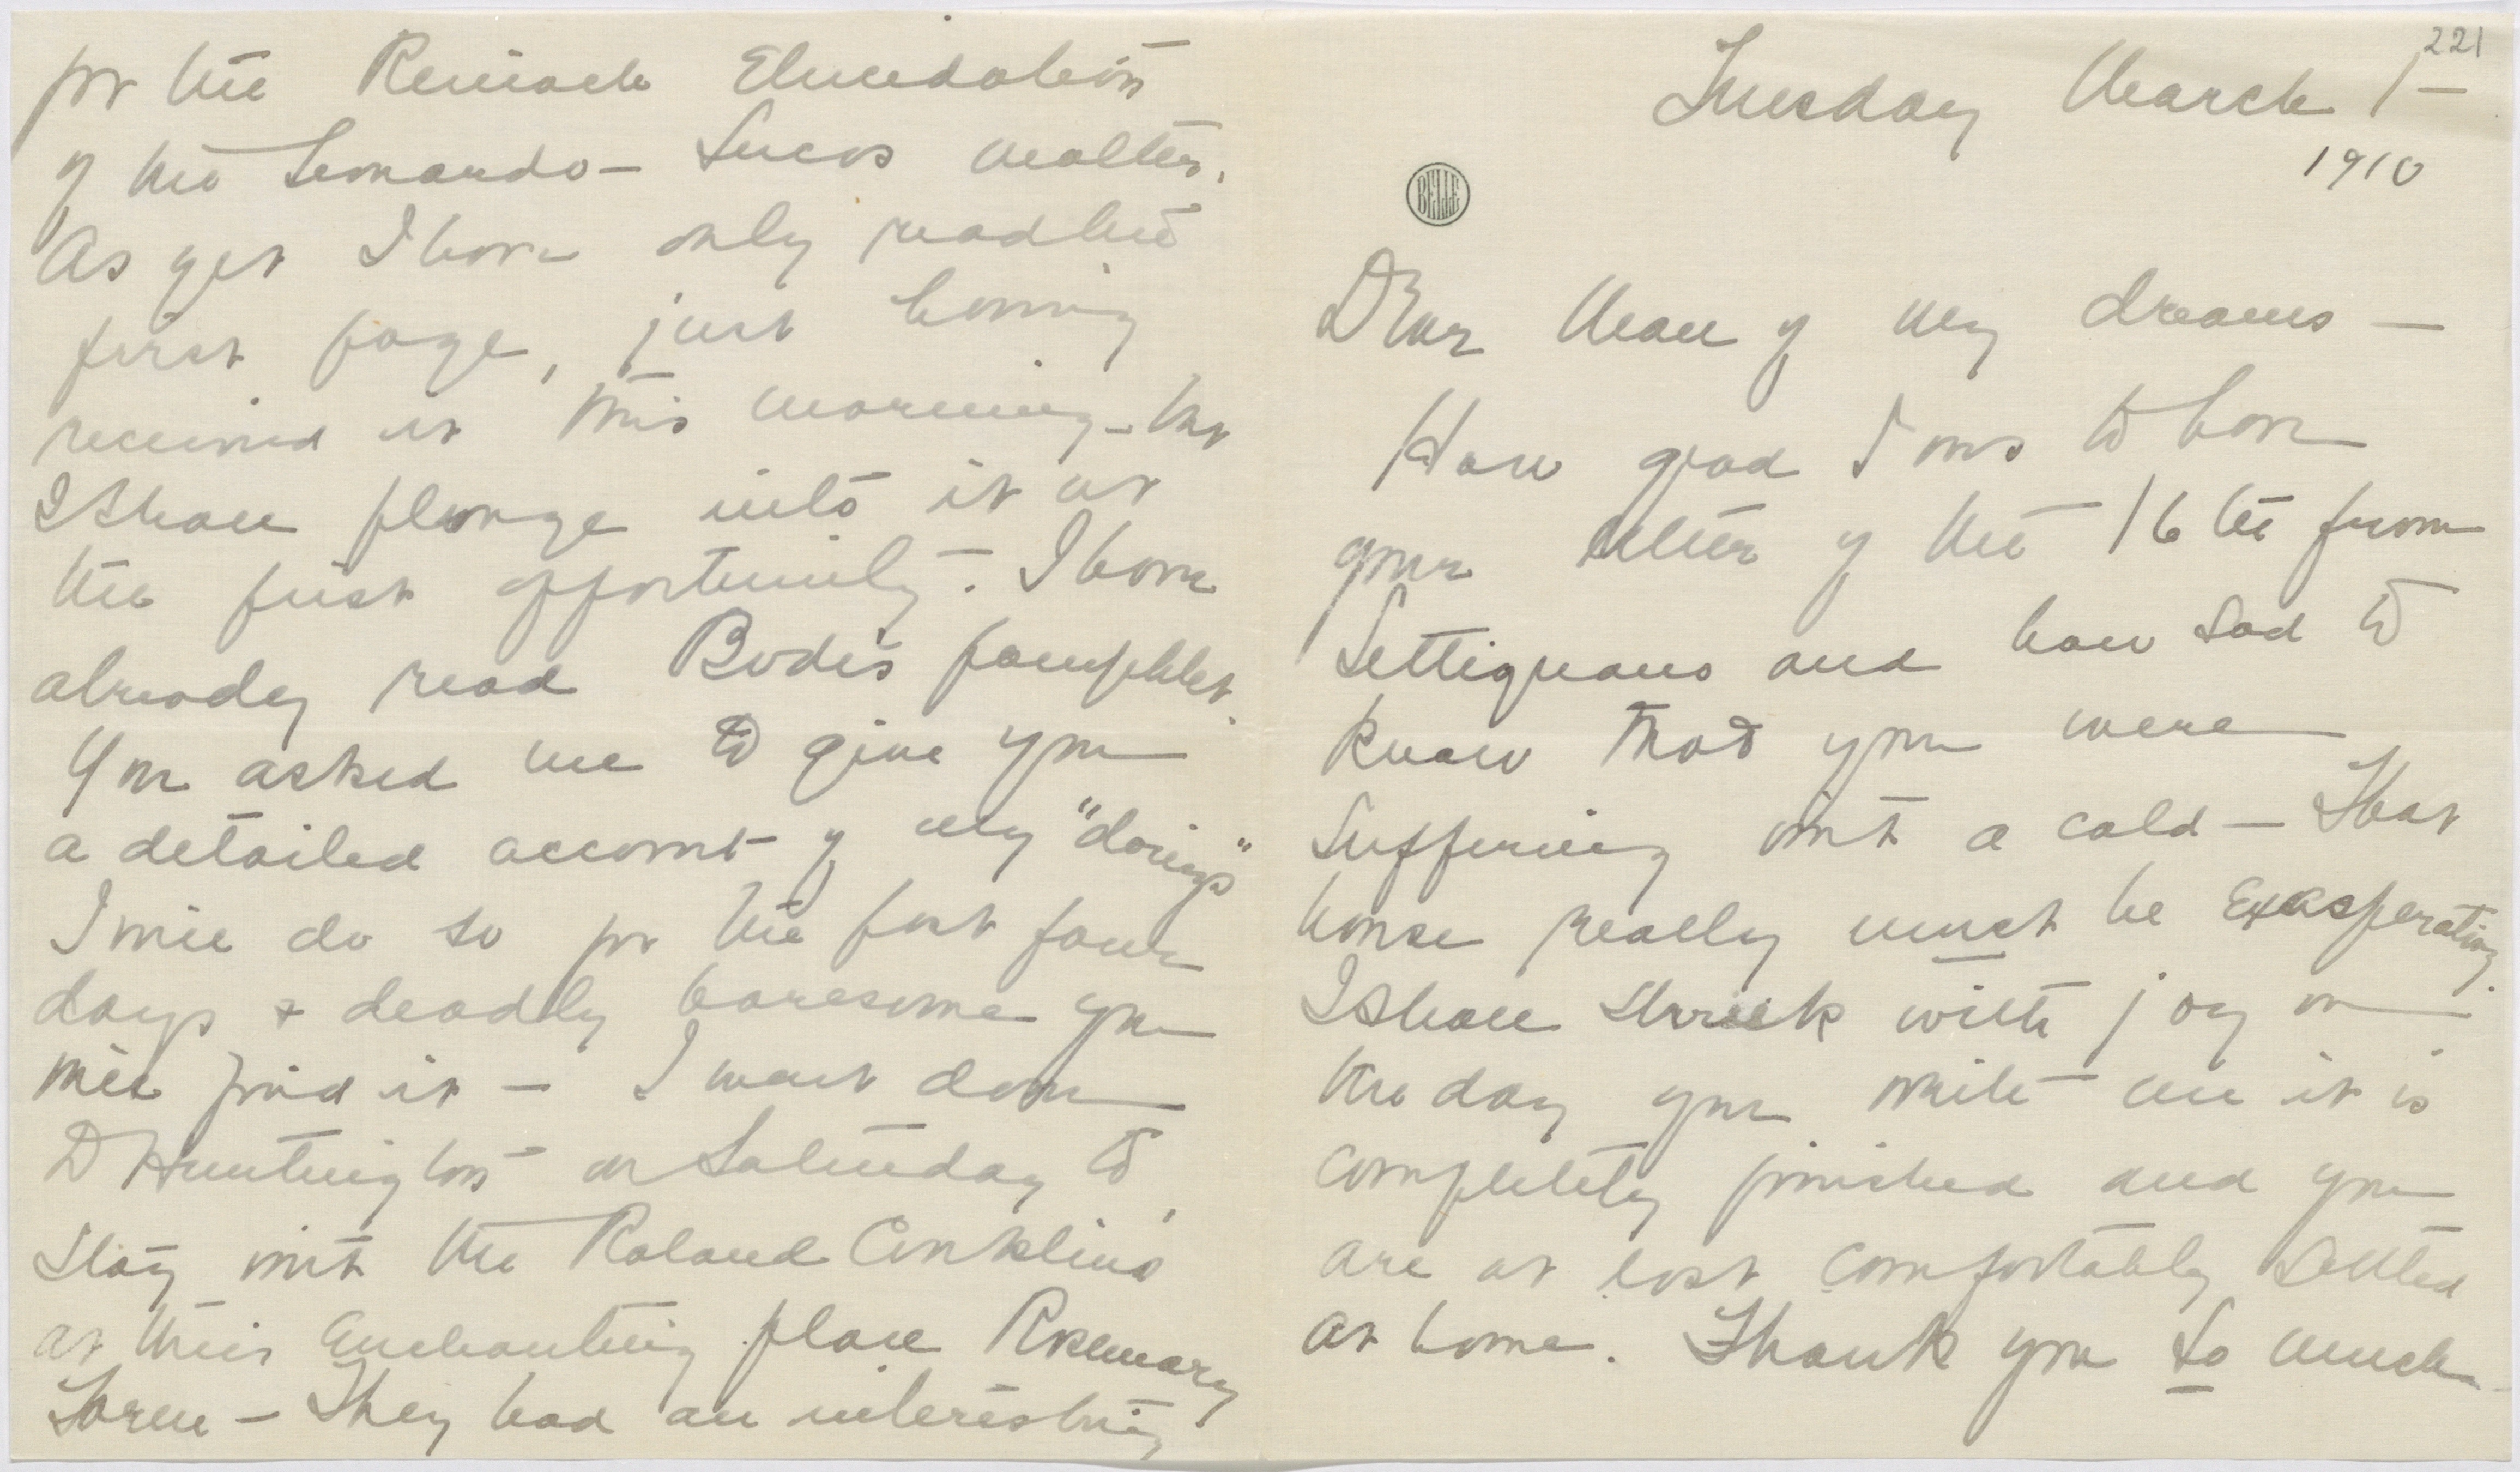 221
Tuesday March 1–
1910
BELLE
Dear Man of my dreams –
How glad I was to have
your letter of the 16th from
Settignano and how sad to
know that you were
suffering with a cold – That
house really must be exasperating.
I shall shriek with joy on
the day you write me it is
completely finished and you
are at last comfortably settled
at home. Thank you so much
for the Reinach Elucidation
of the Leonardo – Lucas matter.
As yet I have only read the
first page, just having
received it this morning – but
I shall plunge into it at
the first opportunity – I have
already read Bode's pamphlet.
You asked me to give you
a detailed account of my "doings"
I will do so for the past four
days & deadly boresome you
will find it – I went down
to Huntington on Saturday to
stay with the Roland Conklins
at their enchanting place Rosemary
Farm – They had an interesting